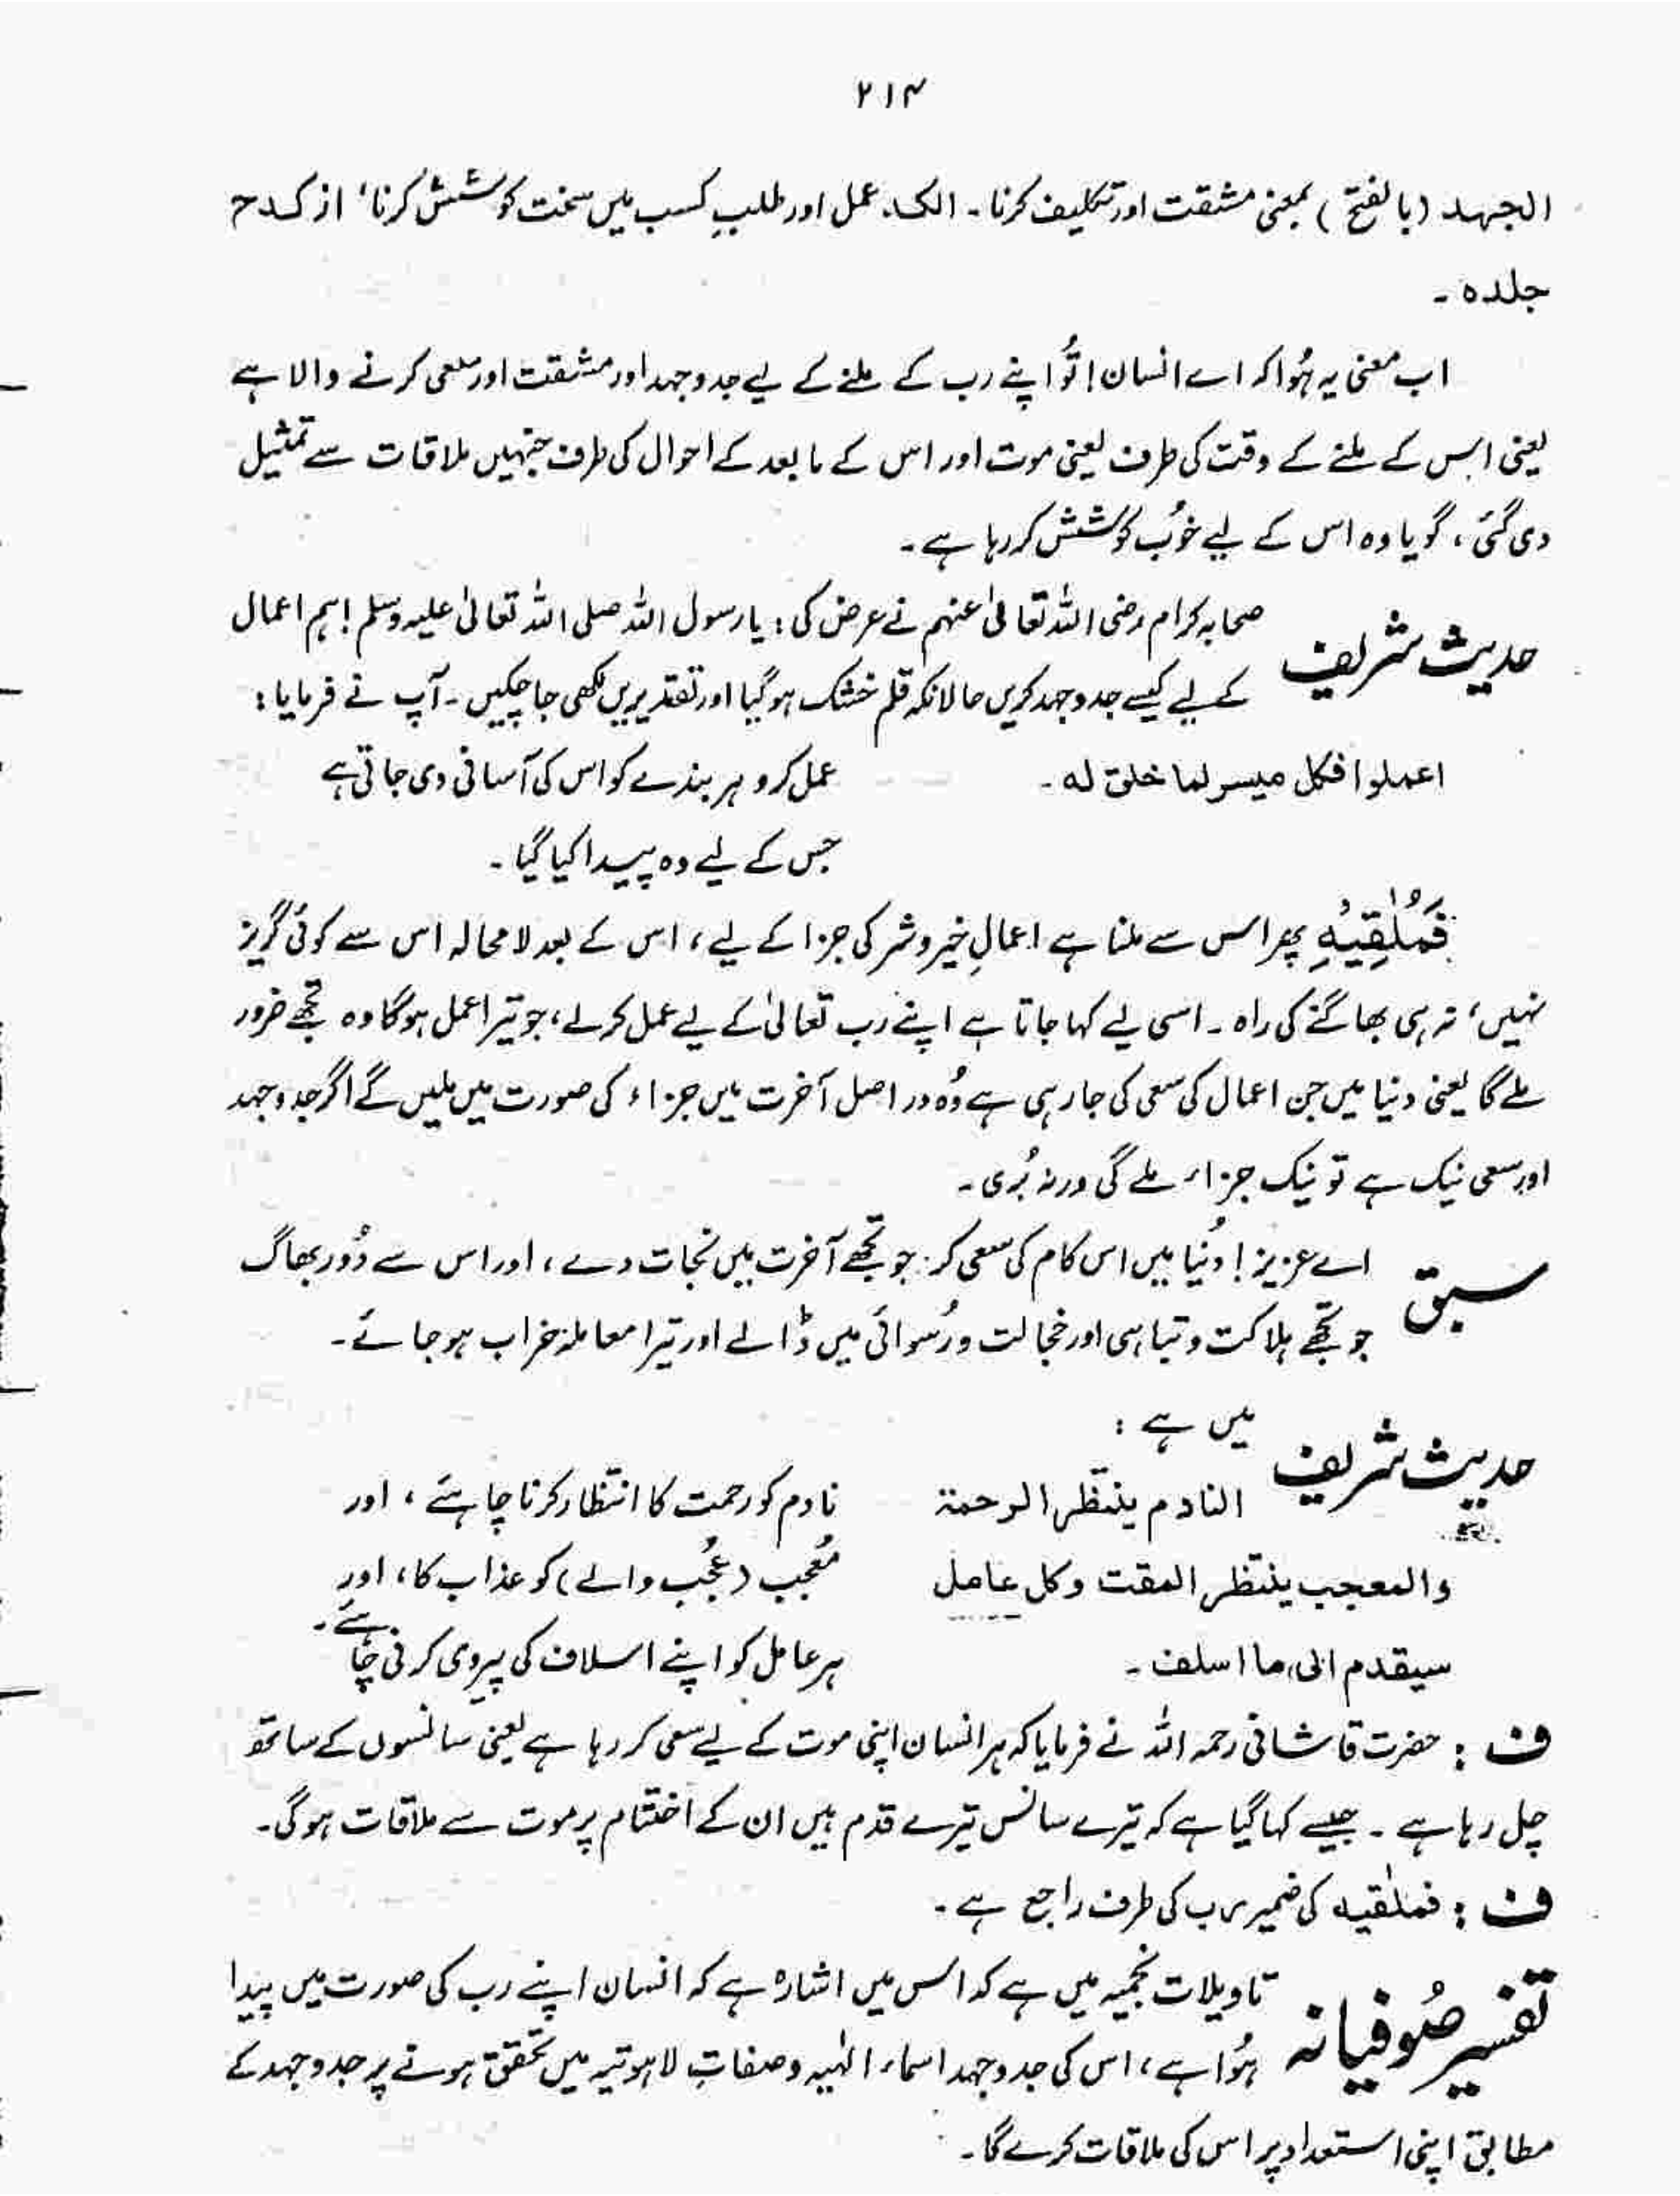 ۲۱۴
الجہد (بالفتح) بمعنی مشقت اور تکلیف کرنا۔ الکد عمل اور طلبِ کسب میں سخت کوشش کرنا، از کدح
جلدہ۔
اب معنی یہ ہُوا کہ اے انسان! تُو اپنے رب کے ملنے کے لیے جدوجہد اور مشقت اور سعی کرنے والا ہے
یعنی اس کے ملنے کے وقت کی طرف یعنی موت اور اس کے مابعد کے احوال کی طرف جنہیں ملاقات سے تمثیل
دی گئی، گویا وہ اس کے لیے خوُب کوشش کر رہا ہے۔
حدیث شریف صحابہ کرام رضی اللہ تعالیٰ عنہم نے عرض کی: یا رسول اللہ صلی اللہ تعالیٰ علیہ وسلم! ہم اعمال
کے لیے کیسے جدوجہد کریں حالانکہ قلم خشک ہو گیا اور تقدیریں لکھی جا چکیں۔ آپ نے فرمایا:
اعملوا فکل میسر لما خلق لہ۔ عمل کرو ہر بندے کو اس کی آسانی دی جاتی ہے
جس کے لیے وہ پیدا کیا گیا۔
فَمُلٰقِیْہِ پھر اس سے ملنا ہے اعمالِ خیر و شر کی جزا کے لیے، اس کے بعد لا محالہ اس سے کوئی گریز
نہیں، نہ ہی بھاگنے کی راہ۔ اسی لیے کہا جاتا ہے اپنے رب تعالیٰ کے لیے عمل کرلے، جو تیرا عمل ہوگا وہ تجھے ضرور
ملے گا یعنی دنیا میں جن اعمال کی سعی کی جا رہی ہے وُہ دراصل آخرت میں جزاء کی صورت میں ملیں گے اگر جدوجہد
اور سعی نیک ہے تو نیک جزاء ملے گی ورنہ بُری۔
سبق اے عزیز! دُنیا میں اس کام کی سعی کر جو تجھے آخرت میں نجات دے، اور اس سے دُور بھاگ
جو تجھے ہلاکت و تباہی اور خجالت و رُسوائی میں ڈالے اور تیرا معاملہ خراب ہو جائے۔
حدیث شریف میں ہے:
النادم ینتظر الرحمۃ نادم کو رحمت کا انتظار کرنا چاہئے، اور
والمعجب ینتظر المقت وکل عامل مُعجب (عُجب والے) کو عذاب کا، اور
سیقدم الی ما اسلف۔ ہر عامل کو اپنے اسلاف کی پیروی کرنی چاہئے۔
ف: حضرت قاشانی رحمہ اللہ نے فرمایا کہ ہر انسان اپنی موت کے لیے سعی کر رہا ہے یعنی سانسوں کے ساتھ
چل رہا ہے۔ جیسے کہا گیا ہے کہ تیرے سانس تیرے قدم ہیں ان کے اختتام پر موت سے ملاقات ہوگی۔
ف: فملٰقیہ کی ضمیر رب کی طرف راجع ہے۔
تفسیر صُوفیانہ تاویلات نجمیہ میں ہے کہ اس میں اشارہ ہے کہ انسان اپنے رب کی صورت میں پیدا
ہُوا ہے، اس کی جدوجہد اسماء الٰہیہ و صفاتِ لاہوتیہ میں تحقق ہونے پر جدوجہد کے
مطابق اپنی استعداد پر اس کی ملاقات کرے گا۔